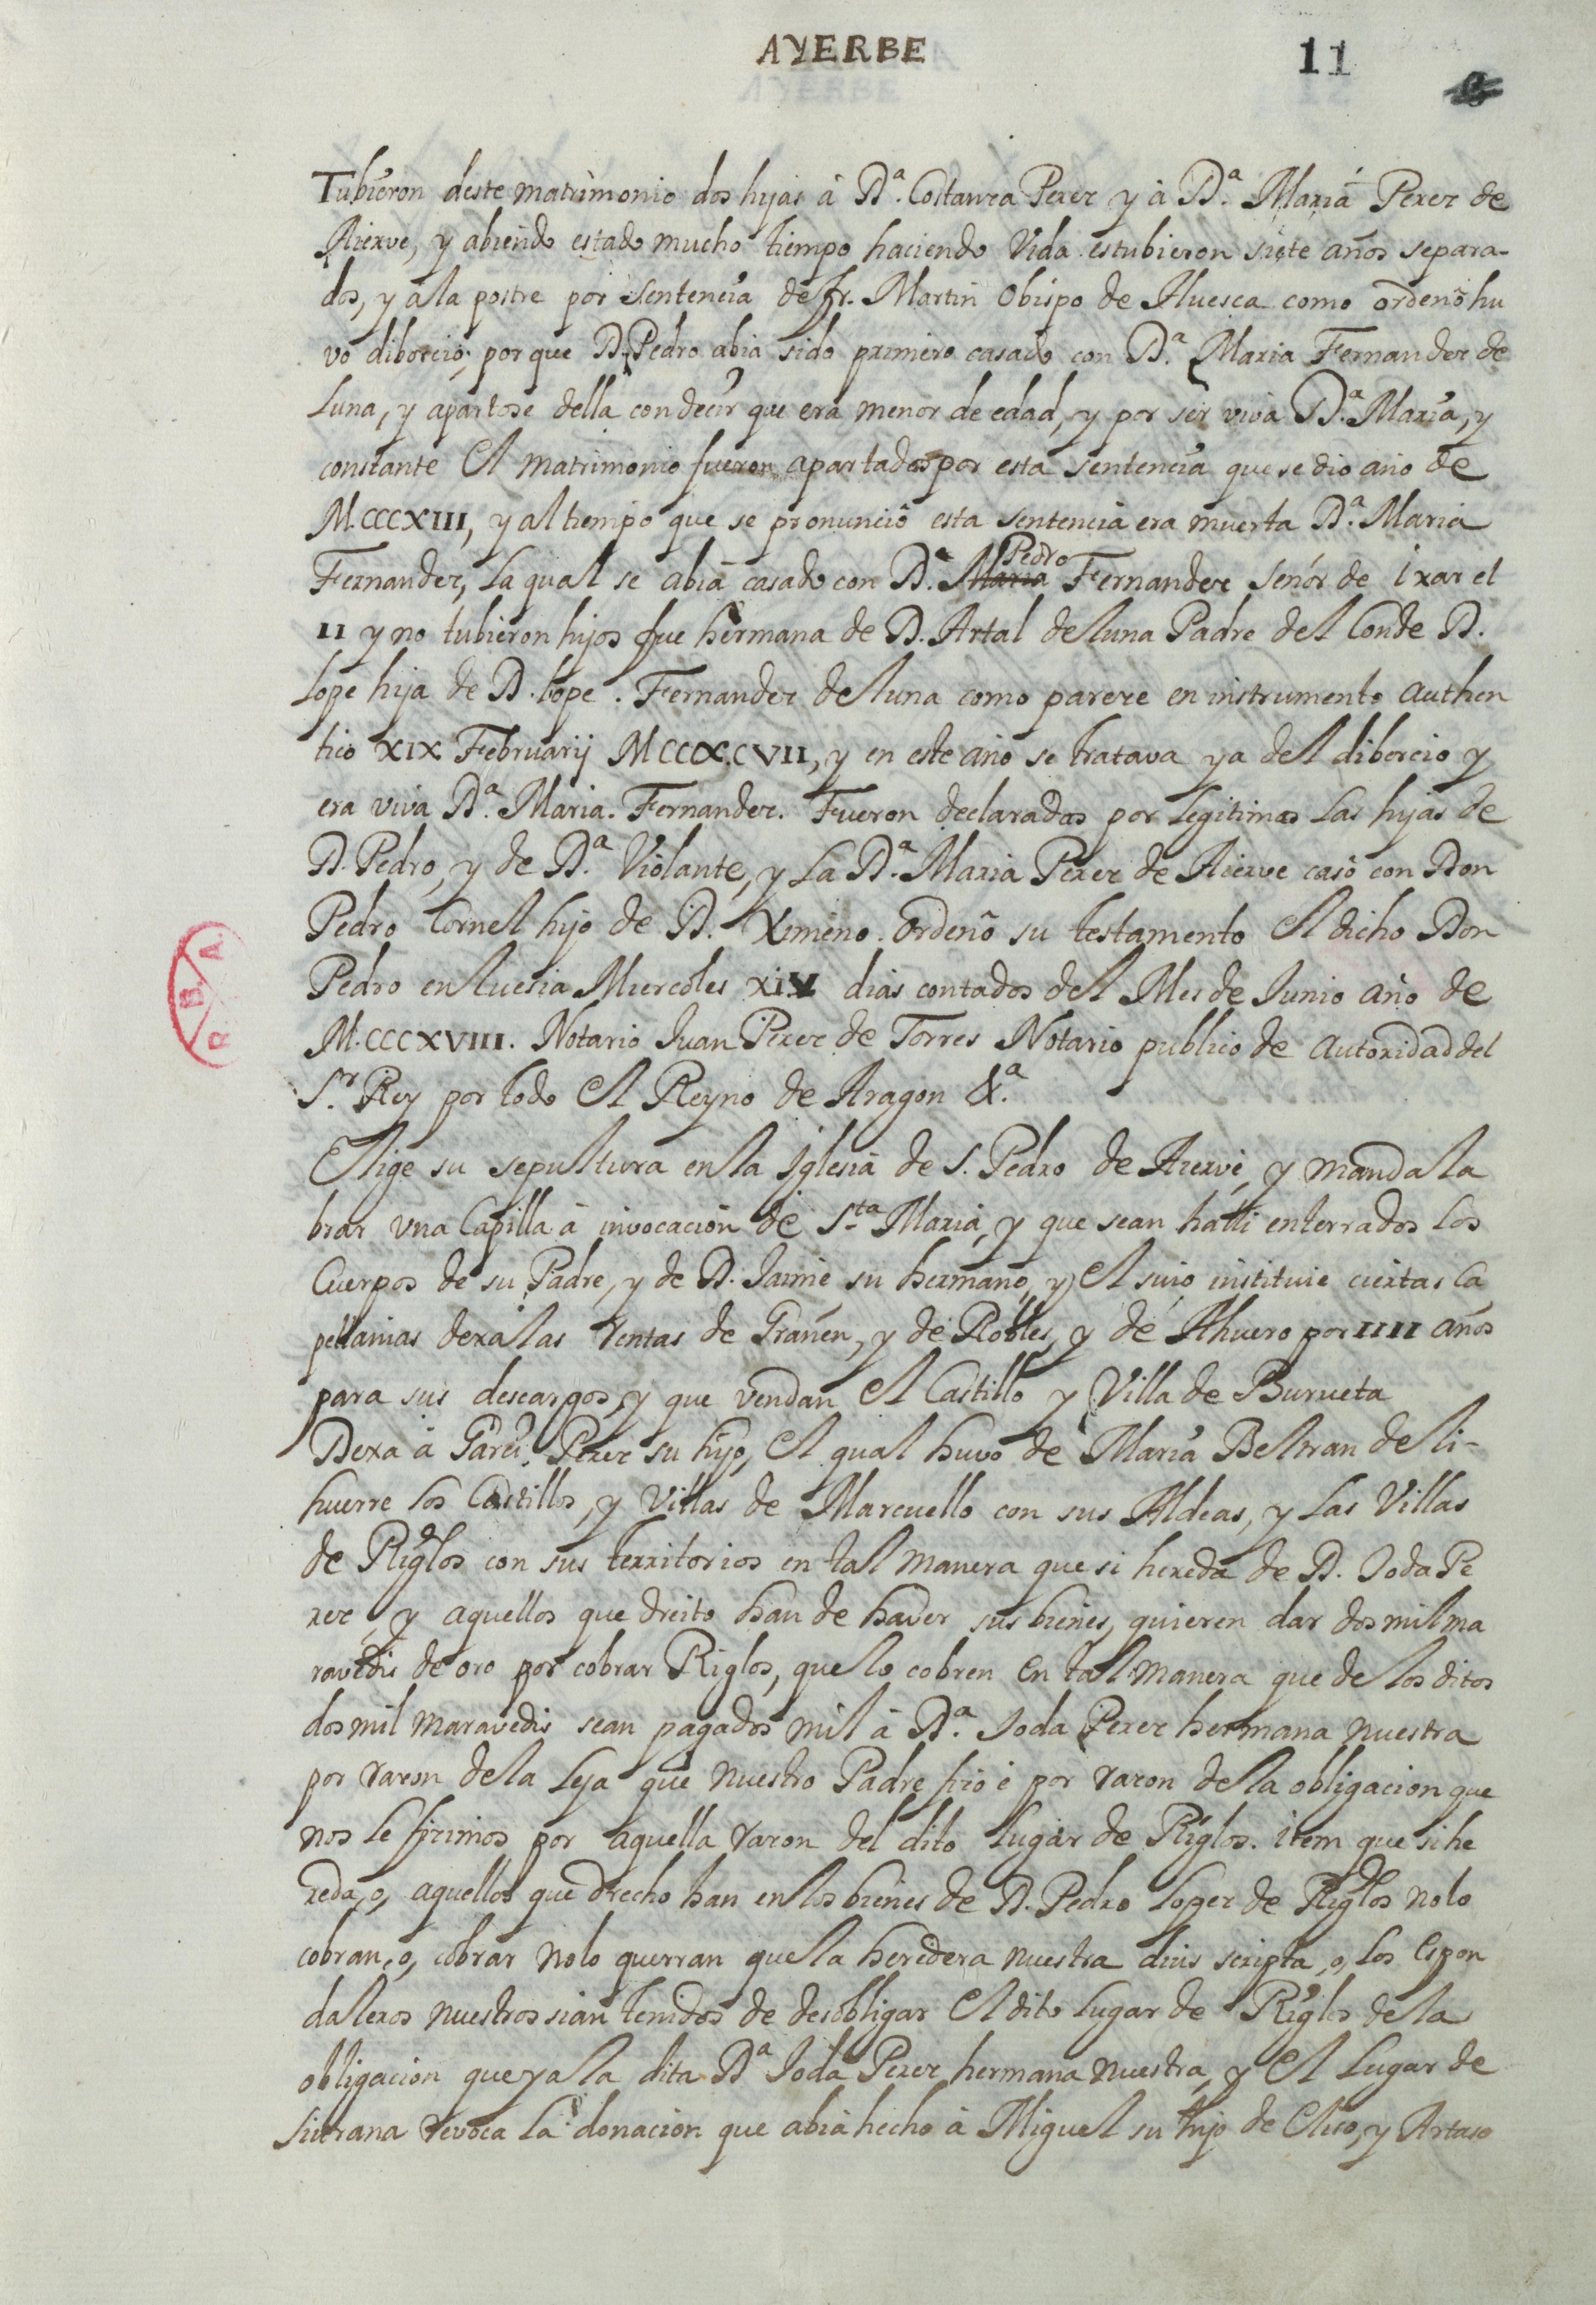 AYERBE
11
Tubieron deste matrimonio dos hijas à D.ª Costanza Perez y à D.ª Maria Perez de
Aierve, y abiendo estado mucho tiempo haciendo Vida estubieron siete años separa-
dos, y à la postre por sentencia de fr. Martin Obispo de Huesca como ordenò hu
vo diborcio, por que D. Pedro abia sido primero casado con D.ª Maria Fernandez de
Luna, y apartose della con decir que era menor de edad, y por ser viva D.ª Maria, y
constante El matrimonio fueron apartados por esta sentencia que se dio año de
M.CCCXIII, y al tiempo que se pronunciò esta sentencia era muerta D.ª Maria
Fernandez, la qual se abia casado con D.ª Maria Pedro Fernandez señor de ixar el
II y no tubieron hijos fue hermana de D. Artal de luna Padre del Conde D.
Lope hija de D. lope. Fernandez de luna como pareze en instrumento authen
tico XIX Februarij MCCCX.CVII, y en este año se tratava ya del diborcio y
era viva D.ª Maria. Fernandez. Fueron declaradas por legitimas las hijas de
D. Pedro, y de D.ª Violante, y La D.ª Maria Perez de Aierve casò con Don
Pedro Cornel hijo de D. Ximeno. Ordenò su testamento El dicho Don
Pedro en luesia Miercoles XIV dias contados del Mes de Junio año de
M.CCCXVIII. Notario Juan Perez de Torres Notario publico de autoridad del
S.r Rey por todo El Reyno de Aragon &.ª
Elige su sepultura en la Iglesia de S. Pedro de Aierve, y manda la
brar vna Capilla à invocacion de S.ta Maria, y que sean halli enterrados los
Cuerpos de su Padre, y de D. Jaime su hermano, y El suio instituie ciertas Ca
pellanias dexa las rentas de Grañen, y de Robles, y de Ahuero por IIII años
para sus descargos, y que vendan El Castillo y Villa de Burueta
Dexa à Garci Perez su hijo, El qual huvo de Maria Beltran de li-
huerre los Castillos, y Villas de Marcuello con sus Aldeas, y las Villas
de Riglos con sus territorios en tal manera que si hereda de D. Toda Pe
rez, y aquellos que dreito han de haver sus bienes, quieren dar dos mil ma
ravedis de oro por cobrar Riglos, que lo cobren en tal manera que de los ditos
dos mil maravedis sean pagados mil à D.ª Toda Perez hermana nuestra
por razon de la leja que nuestro Padre fizo è por razon de la obligacion que
nos le fizimos por aquella razon del dito lugar de Riglos. item que si he
reda, o, aquellos que drecho han en los bienes de D. Pedro Lopez de Riglos no lo
cobran, o, cobrar no lo querran que la heredera nuestra dius scripta, o, los espon
daleros nuestros sian tenidos de desobligar El dito lugar de Riglos de la
obligacion que ya la dita D.ª Toda Perez hermana nuestra, y El Lugar de
Siurana revoca la donacion que abia hecho à Miguel su hijo de Eliso, y Artaso
R B A